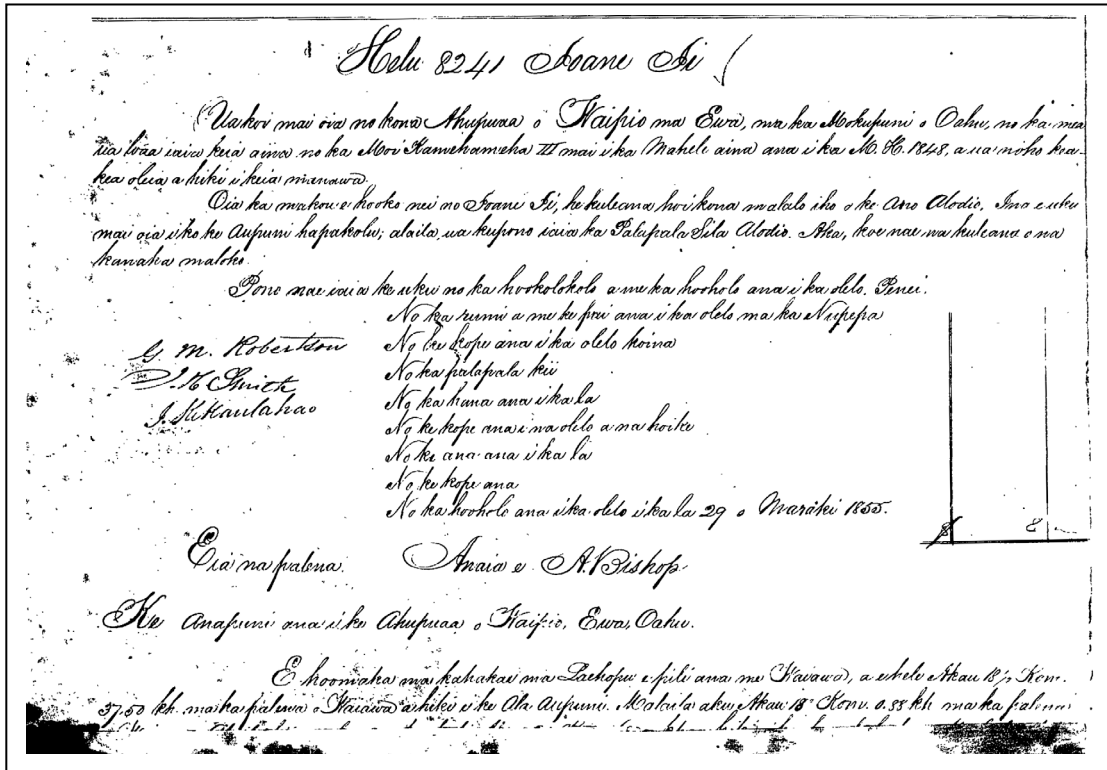 Helu 8241 Ioane Ii
Ua koi mai oia no kona Ahupuaa o Waipio ma Ewa, ma ka Mokupuni o Oahu, no ka mea
ua loaa iaia keia aina no ka Moi Kamehameha III mai i ka Mahele aina ana i ka M.H. 1848, a ua noho kea-
kea oleia a hiki i keia manawa.
Oia ka makou e hooko nei no Ioane Ii, he kuleana hoi kona malalo iho o ke Ano Alodio. Ina e uku
mai oia i ko ke Aupuni hapakolu; alaila, ua kupono iaia ka Palapala Sila Alodio. Aka, koe nae na kuleana o na
kanaka maloko.
Pono nae iaia ke uku no ka hookolokolo a me ka hooholo ana i ka olelo. Penei:
No ka rumi a me ke pai ana i ka olelo ma ka Nupepa
No ke kope ana i ka olelo koina
No ka palapala kii
No ka hana ana i ka la
No ke kope ana i na olelo a na hoike
No ke ana ana i ka la
No ke kope ana
No ka hooholo ana i ka olelo i ka la 29 o Maraki 1855.
8
G. M. Robertson
J. H. Smith
J. Kekaulahao
Eia na palena. Anaia e A. Bishop
Ke Anapuni ana i ke Ahupuaa o Waipio, Ewa, Oahu.
E hoomaka ma kahakai ma Paehopu e pili ana me Waiawa, a e hele Akau 18½ Kom.
37.50 kh. ma ka palena o Waiawa a hiki i ke Ala Aupuni. Malaila aku Akau 18° Kom. 0.38 kh ma ka palena